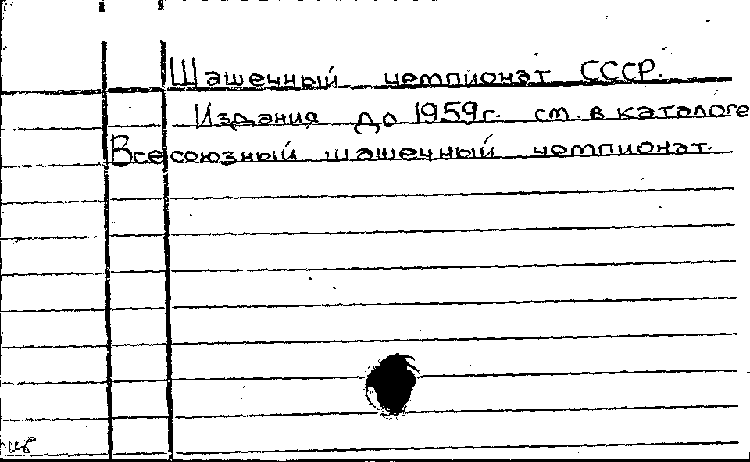 Шашечный чемпионат СССР.
Издания до 1959г. см. в каталоге
Всесоюзный шашечный чемпионат.